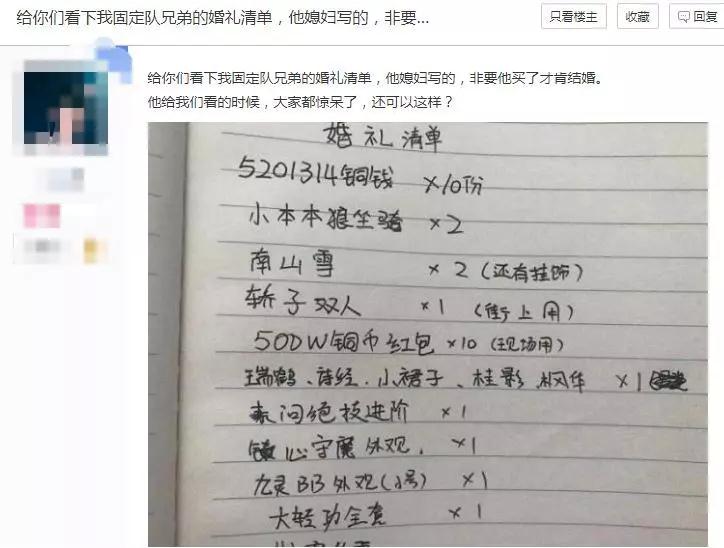 给你们看下我固定队兄弟的婚礼清单，他媳妇写的，非要...
只看楼主 收藏 回复
给你们看下我固定队兄弟的婚礼清单，他媳妇写的，非要他买了才肯结婚。
他给我们看的时候，大家都惊呆了，还可以这样？
婚礼清单
5201314铜钱 ×10份
小本本狼坐骑 ×2
南山雪 ×2（还有挂饰）
轿子双人 ×1（街上用）
500W铜币红包 ×10（现场用）
瑞鹤、诗经、小裙子、桂影、枫华 ×1
素问绝技进阶 ×1
心守魔外观, ×1
九灵BB外观（小号） ×1
大轻功全套 ×1